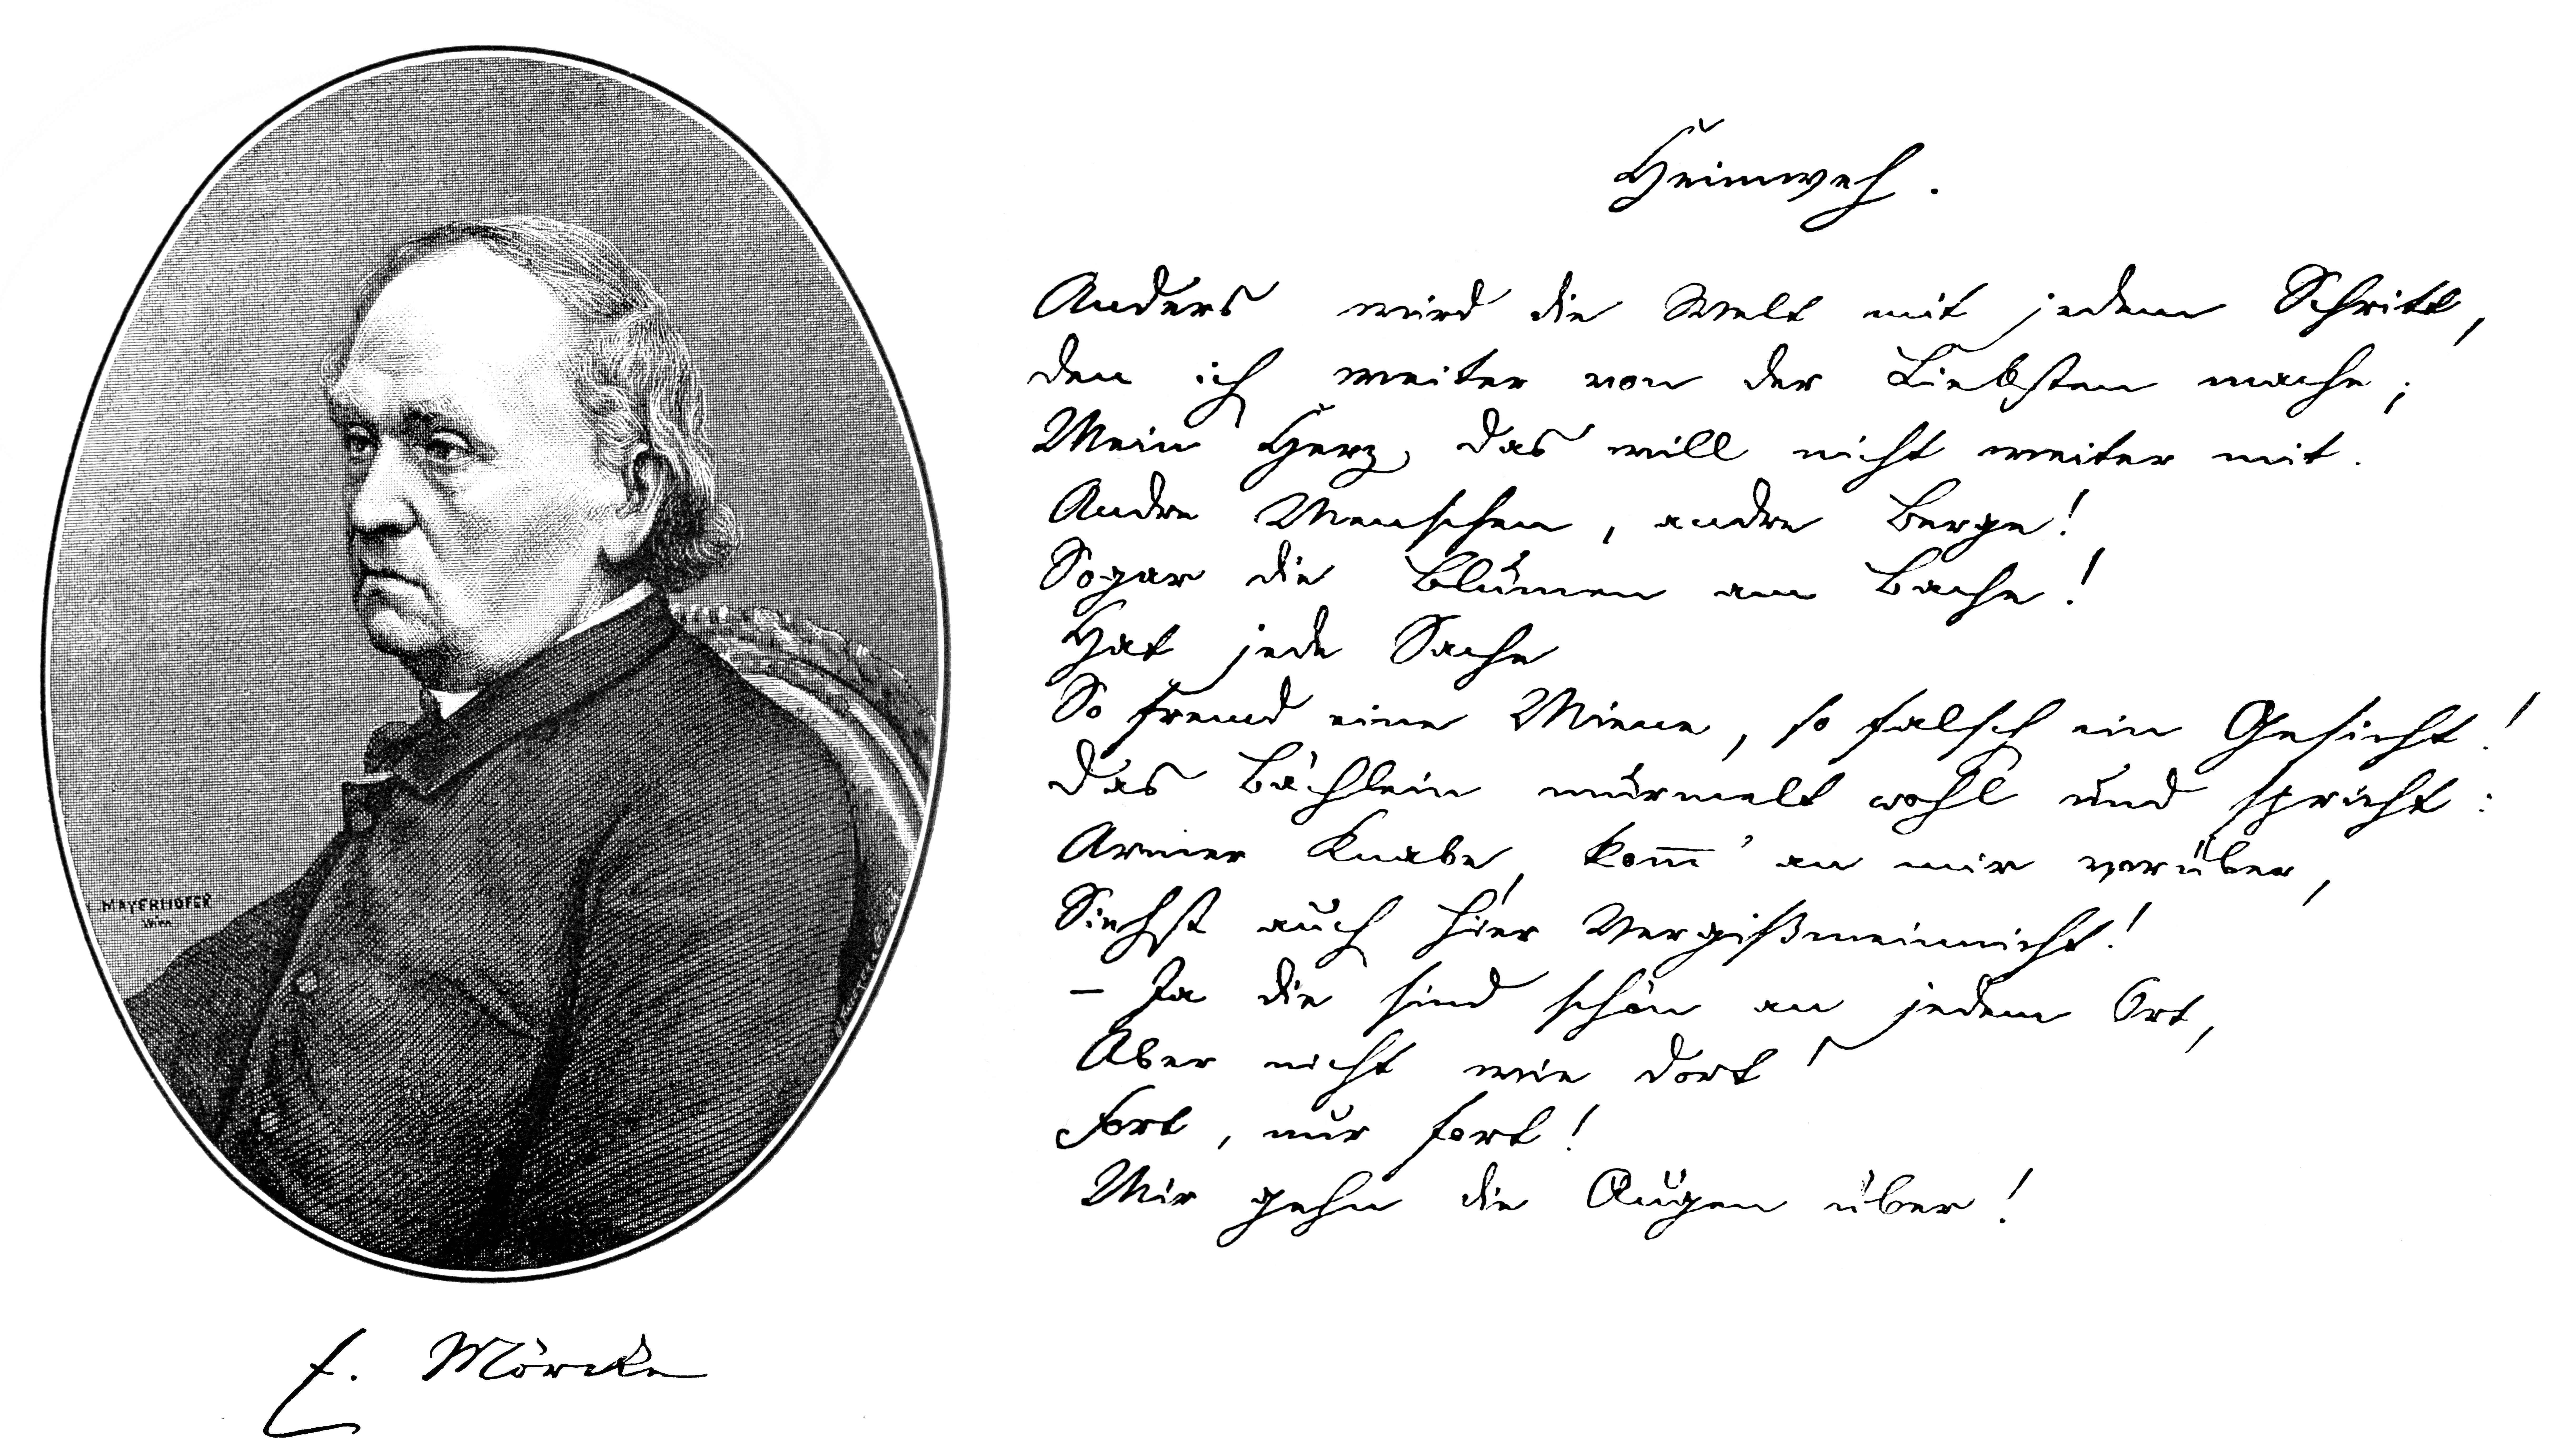 Heimweh.
Anders wird die Welt mit jedem Schritt,
den ich weiter von der Liebsten mache;
Mein Herz, das will nicht weiter mit.
Andre Menschen, andre Berge!
Sogar die Blumen am Bache!
Hat jede Sache
So fremd eine Miene, so falsch ein Gesicht!
Das Bächlein murmelt wohl und spricht:
Armer Knabe, kom̅' an mir vorüber,
Siehst auch hier Vergißmeinnicht!
– Ja die sind schön an jedem Ort,
Aber nicht wie dort!
Fort, nur fort!
Mir gehn die Augen über!
MAYERHOFER
Wien
E. Möricke